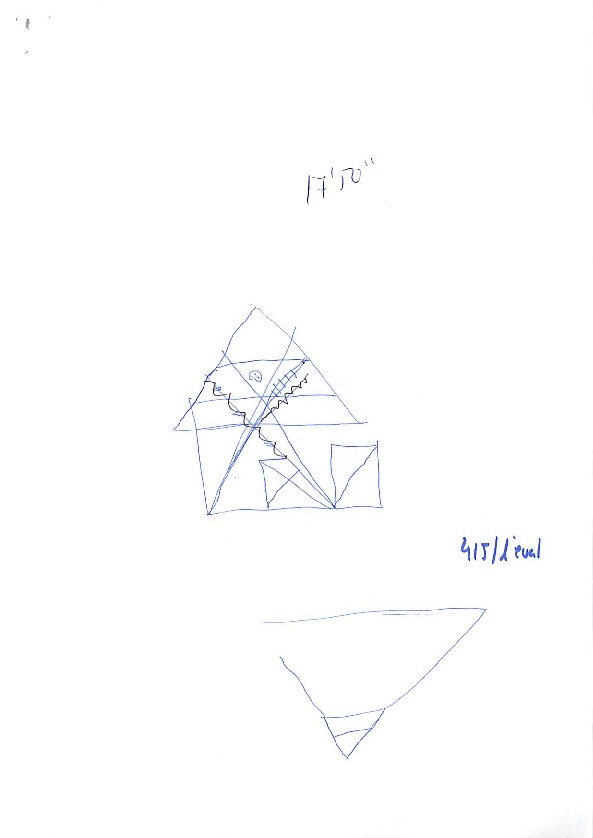 17'50"
415/1'eval